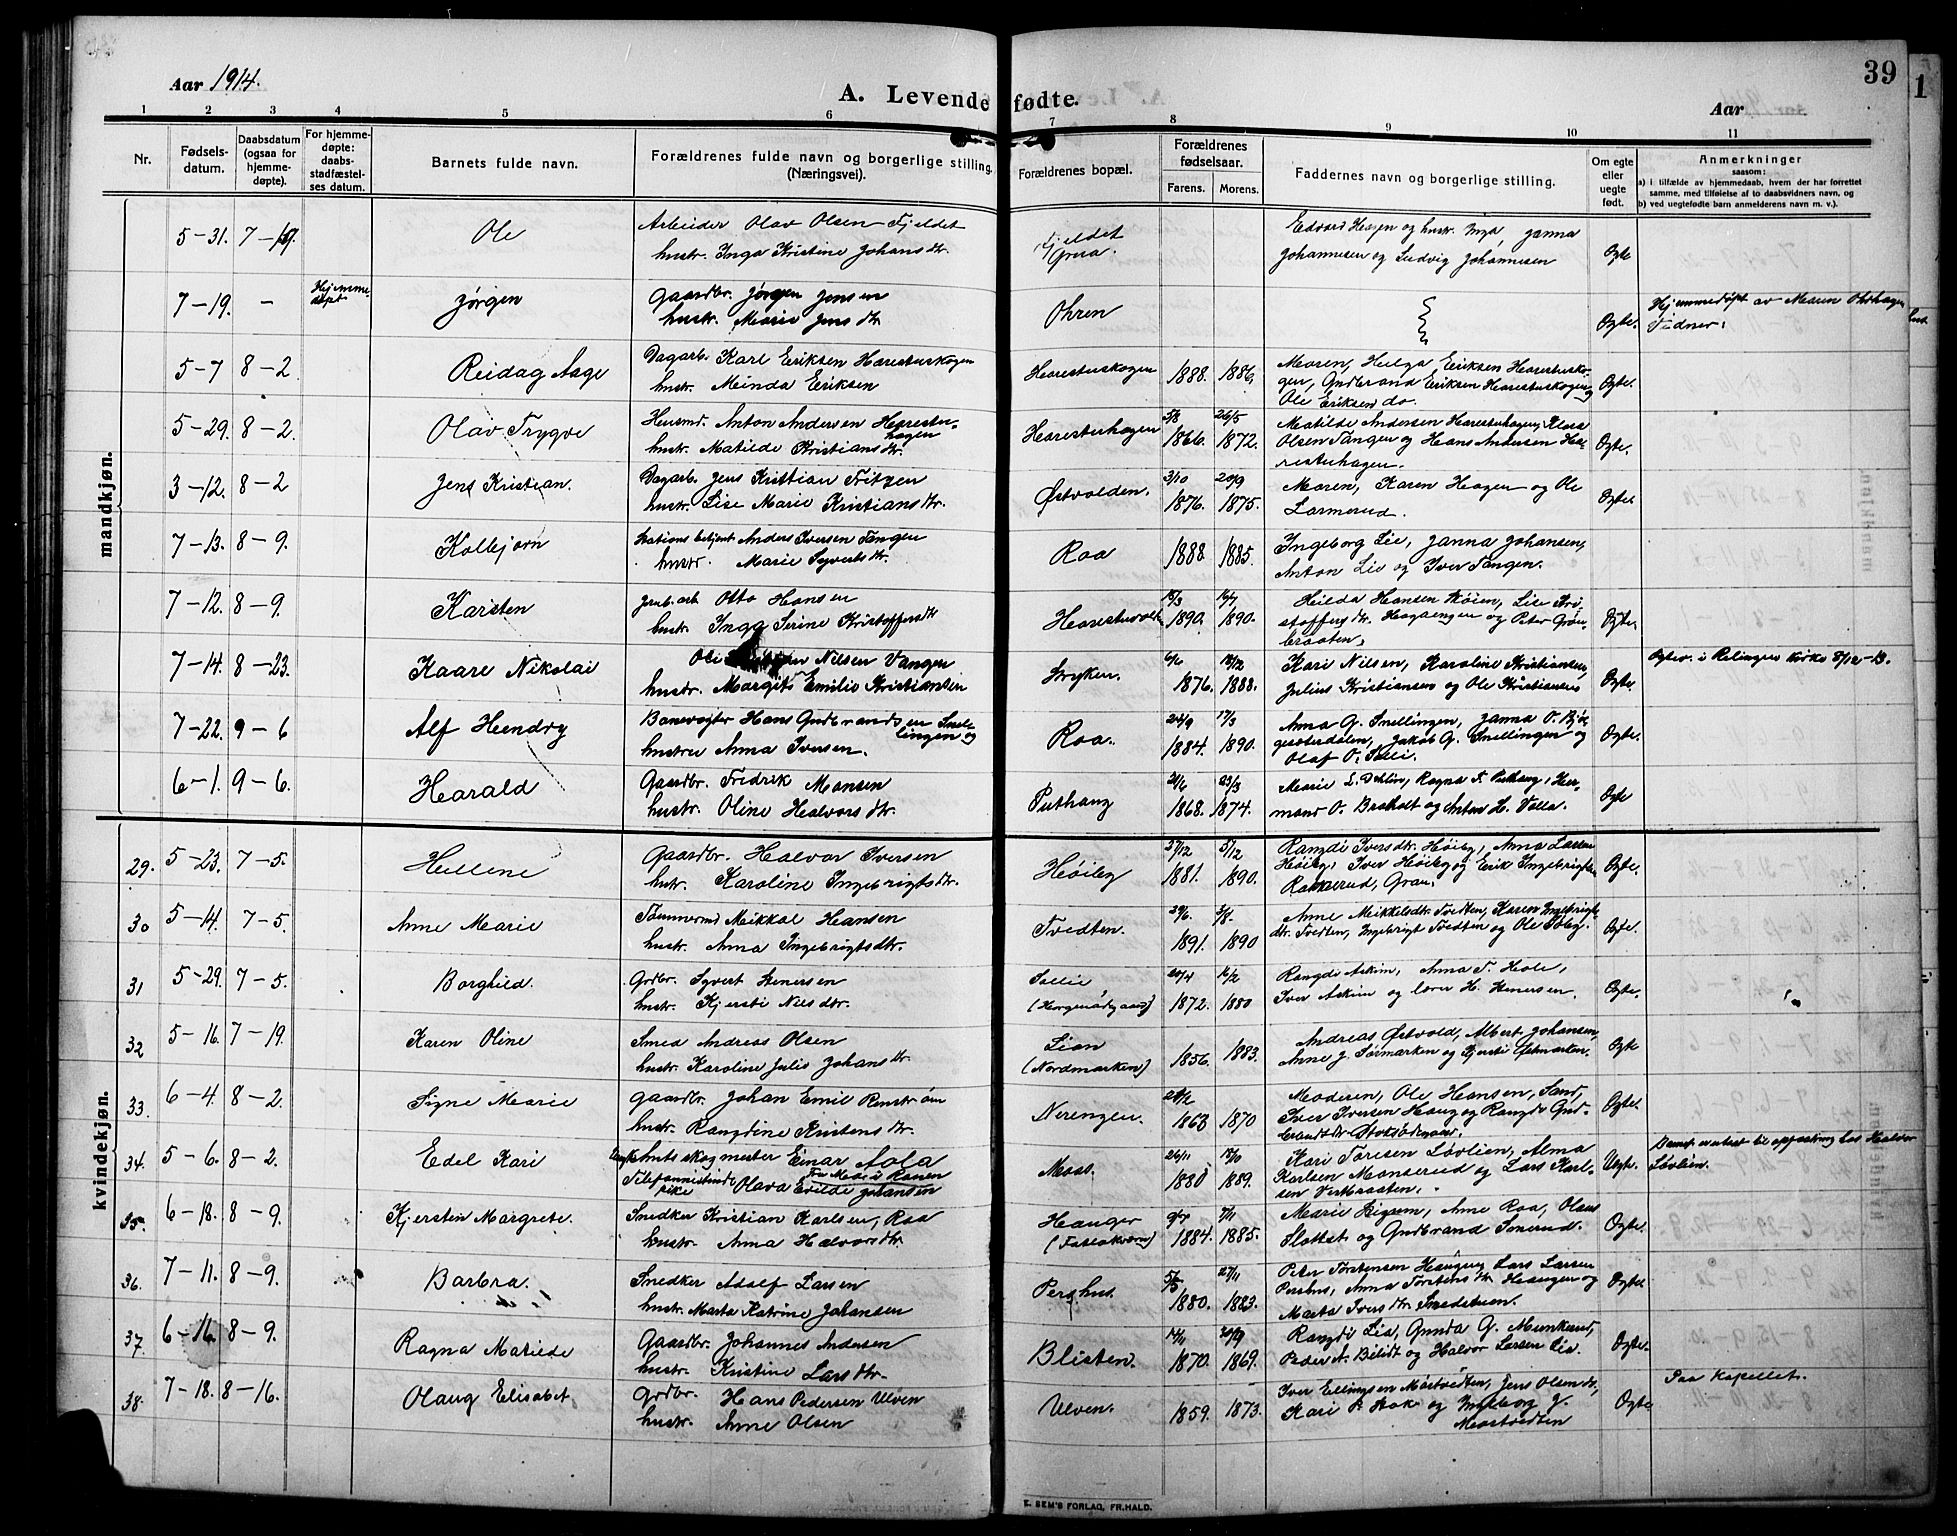 39
1
Aar 1914.
A. Levende fødte.
Aar
1 2 3 4 5 6 7 8 9 10 11
Nr.
Fødselsdatum.
Daabsdatum (ogsaa for hjemmedøpte).
For hjemmedøpte: daabsstadfæstelses datum.
Barnets fulde navn.
Forældrenes fulde navn og borgerlige stilling. (Næringsvei).
Forældrenes bopæl.
Forældrenes fødselsaar.
Farens. Morens.
Faddernes navn og borgerlige stilling.
Om egte eller uegte født.
Anmerkninger
saasom:
a) i tilfælde av hjemmedaab, hvem der har forrettet samme, med tilføielse af to daabsvidners navn, og
b) ved uegtefødte barn anmelderens navn m. v.).
mandkjøn.
5-31. 7-19. Ole
Arbeider Olav Olsen Fjeldet
hustr. Inga Kristine Johansdtr.
Fjeldet
Grua.
Edvard Hagen og hustr. Inga, Janna
Johannesen og Ludvig Johannesen
Egte
7-19. - Hjemmedøpt Jørgen
Gaardbr. Jørgen Jensen
hustr. Marie Jensdtr.
Ohren
Egte.
Hjemmedøpt av Maren
5-7 8-2 Reidag Aage
Dagarb. Karl Eriksen Harestuskogen
hustr. Minda Eriksen
Harestuskogen 1888. 1886.
Maren, Helga Eriksen Harestuskogen, Gudbrand Eriksen Harestuskogen og
Ole Eriksen do.
Egte.
5-29. 8-2. Olav Trygve
Husmd. Anton Andersen Harestuhagen
hustr. Matilde Kristiansdtr.
Harestuhagen 5/8 1866. 26/5 1872.
Matilde Andersen Harestuhagen, Klara
Olsen Tangen og Hans Andersen Harestuhagen.
Egte.
3-12. 8-2 Jens Kristian.
Dagarb. Jens Kristian Fritzen
hustr. Lise Marie Kristiansdtr.
Østvolden. 3/10 1876. 20/9 1875.
Maren, Karen Hagen og Ole
Larmerud.
Egte.
7-13. 8-9. Kolbjørn
Stationsbetjent Anders Iversen Tangen
hustr. Marie Syvertsdtr.
Roa 1888 1885.
Ingeborg Lie, Janna Johansen,
Anton Lie og Iver Tangen.
7-12. 8-9. Karsten
Jernb.arb Otto Hansen
hustr. Inga Serine Kristoffersdtr
1890. 1890.
Hilda Hansen Moien, Lise Kristoffersdtr. Hagaengen og Peter Grønbraaten.
Egte.
7-14. 8-23. Kaare Nikolai
Ole Nilsen Vangen
hustr. Margit Emilie Kristiansen
Stryken. 6/6 1876. 18/12 1888.
Kari Nilsen, Karoline Kristiansen,
Julius Kristiansen og Ole Kristiansen
Egte.
7-22. 9-6 Alf Hendry
Banevogter Hans Gudbrandsen Snellingen og
hustru Anna Iversen.
Roa. 24/9 1884. 17/3 1890.
Anna G. Snellingen, Janna O. Bjørgesæterdalen, Jakob G. Snellingen og
Olaf O. Sølie.
Egte.
6-1. 9-6. Harald
Gaardbr. Fredrik Monsen
hustr. Oline Halvorsdtr.
Puthaug 21/6 1868. 23/3 1874.
Marie L. Dehlin, Ragna F. Puthaug, Herman O. Braholt og Anton H. Volla.
Egte
kvindekjøn.
29. 5-23. 7-5. Hellene
Gaardbr. Halvor Iversen
hustr. Karoline Ingebrigtsdtr.
Høiby 27/12 1881. 5/12 1890.
Rangdi Iversdtr. Høiby, Anna Larsen
Høiby, Iver Høiby og Erik Ingebrigtsen
Ramserud, Gran.
Egte.
30 5-14. 7-5. Anne Marie
Tømmermd Mikkal Hansen
hustr. Anna Ingebrigtsdtr.
Tvedten. 1891. 1890
Anne Mikkelsdtr. Tvedten, Karen Ingebrigtsdtr. Tvedten, Ingebrigt Tvedten og Ole Søby.
Egte.
31 5-29. 7-5. Borghild.
Grdbr. Syvert Henersen
hustr. Kjersti Nilsdtr.
Sollie
20/4 1872. 16/2 1880
Rangdi Askim, Anna T. Hole,
Iver Askim og lærer H. Henersen.
Egte.
32 5-16. 7-19. Karen Oline
Smed Andreas Olsen
hustr. Karoline Julie Johansdtr.
Lian
(Nordmarken) 1856. 1883.
Andreas Østvold, Albert Johansen,
Anne J. Sørmarken og Kjersti Østmarken.
Egte
33. 6-4. 8-2. Signe Marie
Gaardbr. Johan Emil Renstrøm
hustr. Rangdine Kristensdtr.
Nerengen. 1863 1870
Moderen, Ole Hansen, Sand,
Iver Iversen Haug og Rangdi Gudbrandsdtr.
Egte.
34. 5-6. 8-2. Edel Kari
skogmester Einar Aola
Telefonistinde pike Olava Evilde Johansen
Moss. 26/11 1880 1889.
Kari Toresen Løvlien, Alma
Karlsen Monserud og Lars Karlsen Vestbraaten.
Uegte.
Barnet er utsat til opfostring hos Halvor
Løvlien.
35. 6-18. 8-9. Kjersten Margrete.
Snedker Kristian Karlsen, Roa
hustr. Anna Halvorsdtr.
Hauger
1884. 1885.
Marie Bigsem, Anne Roa, Olaus
Slottet og Gudbrand Smerud.
Egte.
36. 7-11. 8-9. Barbra.
Snedker Adolf Larsen
hustr. Marta Katrine Johansen
Pershus. 5/5 1880. 27/11 1883.
Peter Torstensen Haugen, Lars Larsen
Pershus, Anna Torstensdtr. Haugen og
Marta Iversdtr. Smedstuen.
Egte.
37. 6-16. 8-9. Ragna Matilde
Gaardbr. Johannes Andersen
hustr. Kristine Larsdtr.
Blisten. 14/11 1870. 20/9 1869.
Rangdi Lie, Gunda G. Munkerud,
Peder A. Bilidt og Halvor Larsen Lie.
Egte.
38. 7-18. 8-16. Olaug Elisabet.
Grdbr. Hans Pedersen Ulven
hustr. Anne Olsen
Ulven. 1859. 1873.
Iver Ellingsen Mostvedten, Jens Olsen do,
Kari P. Kok og Ingeborg J.
Mostvedten
Egte.
Paa Kapellet.
E. SEM'S FORLAG, FR.HALD.